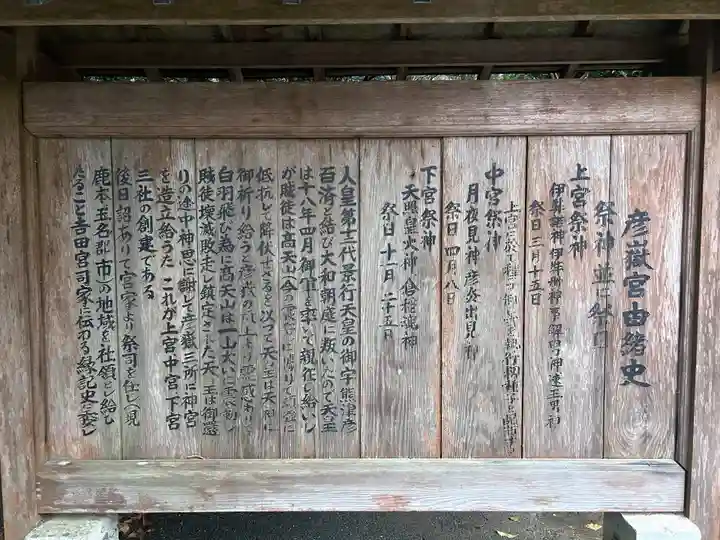 彦嶽宮由緒史
祭神並に祭日
上宮祭神
伊弉諾神 伊弉册神 事解男神 速玉男神
祭日 三月十五日
上宮に於て種子御
中宮祭神
月夜見神 彦炎出見神
祭日 四月八日
下宮祭神
天照皇大神 倉稲魂神
祭日 十一月二十五日
人皇第十二代景行天皇の御宇熊津彦
百済と結び大和朝庭に叛いたので天皇
は十八年四月御軍を率いて親征し給いし
が賊徒は高天山
抵抗して降伏せざるを以つて天皇は天神に
御祈り給うと彦嶽の
白羽飛び為に高天山は一山大いに
賊徒壊滅敗走し鎮定さした天皇は御還
りの途中神恩に謝して彦嶽三所に神宮
を造立給うた これが上宮中宮下宮
三社の創建である
後日詔ありて宮家より祭司を任し(現
鹿本玉名郡市)の地域を社領とし給し
たること吉田宮司家に伝わる縁記史に委し